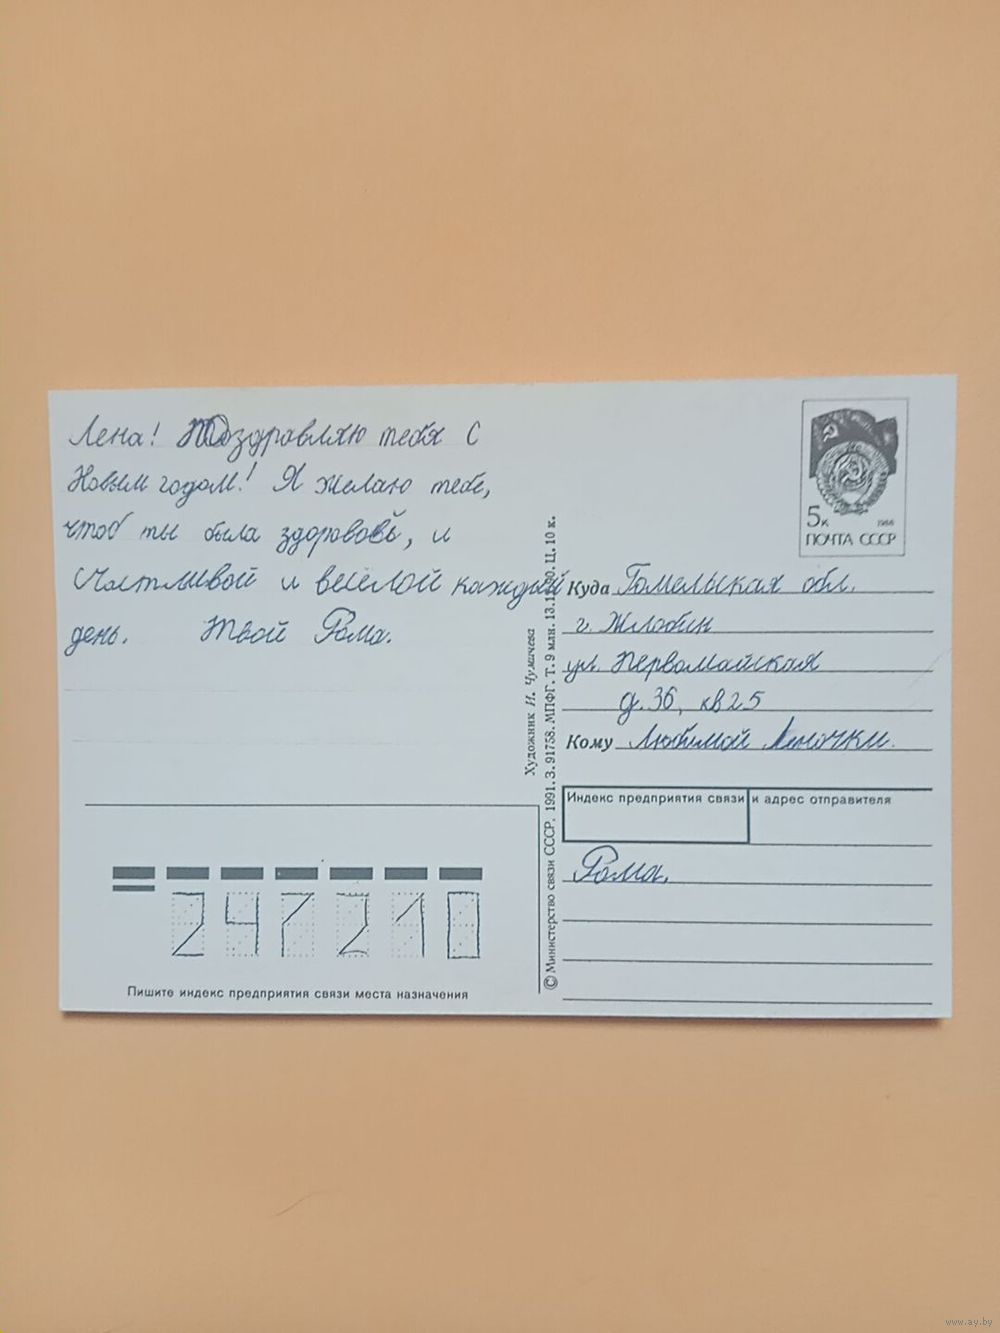 Лена! Поздравляю тебя с
Новым годом! Я желаю тебе,
чтоб ты была здоровой, и
счастливой и весёлой каждый
день. Твой Рома.
5к 1988
ПОЧТА СССР
Куда Гомельская обл.
г. Жлобин
ул. Первомайская
д. 36, кв 25
Кому Любимой Леночки.
Индекс предприятия связи и адрес отправителя
Рома.
247210
Пишите индекс предприятия связи места назначения
Художник И. Чумичева
© Министерство связи СССР. 1991. З. 91758. МПФГ. Т. 9 млн. Ц. 10 к.
www.ay.by